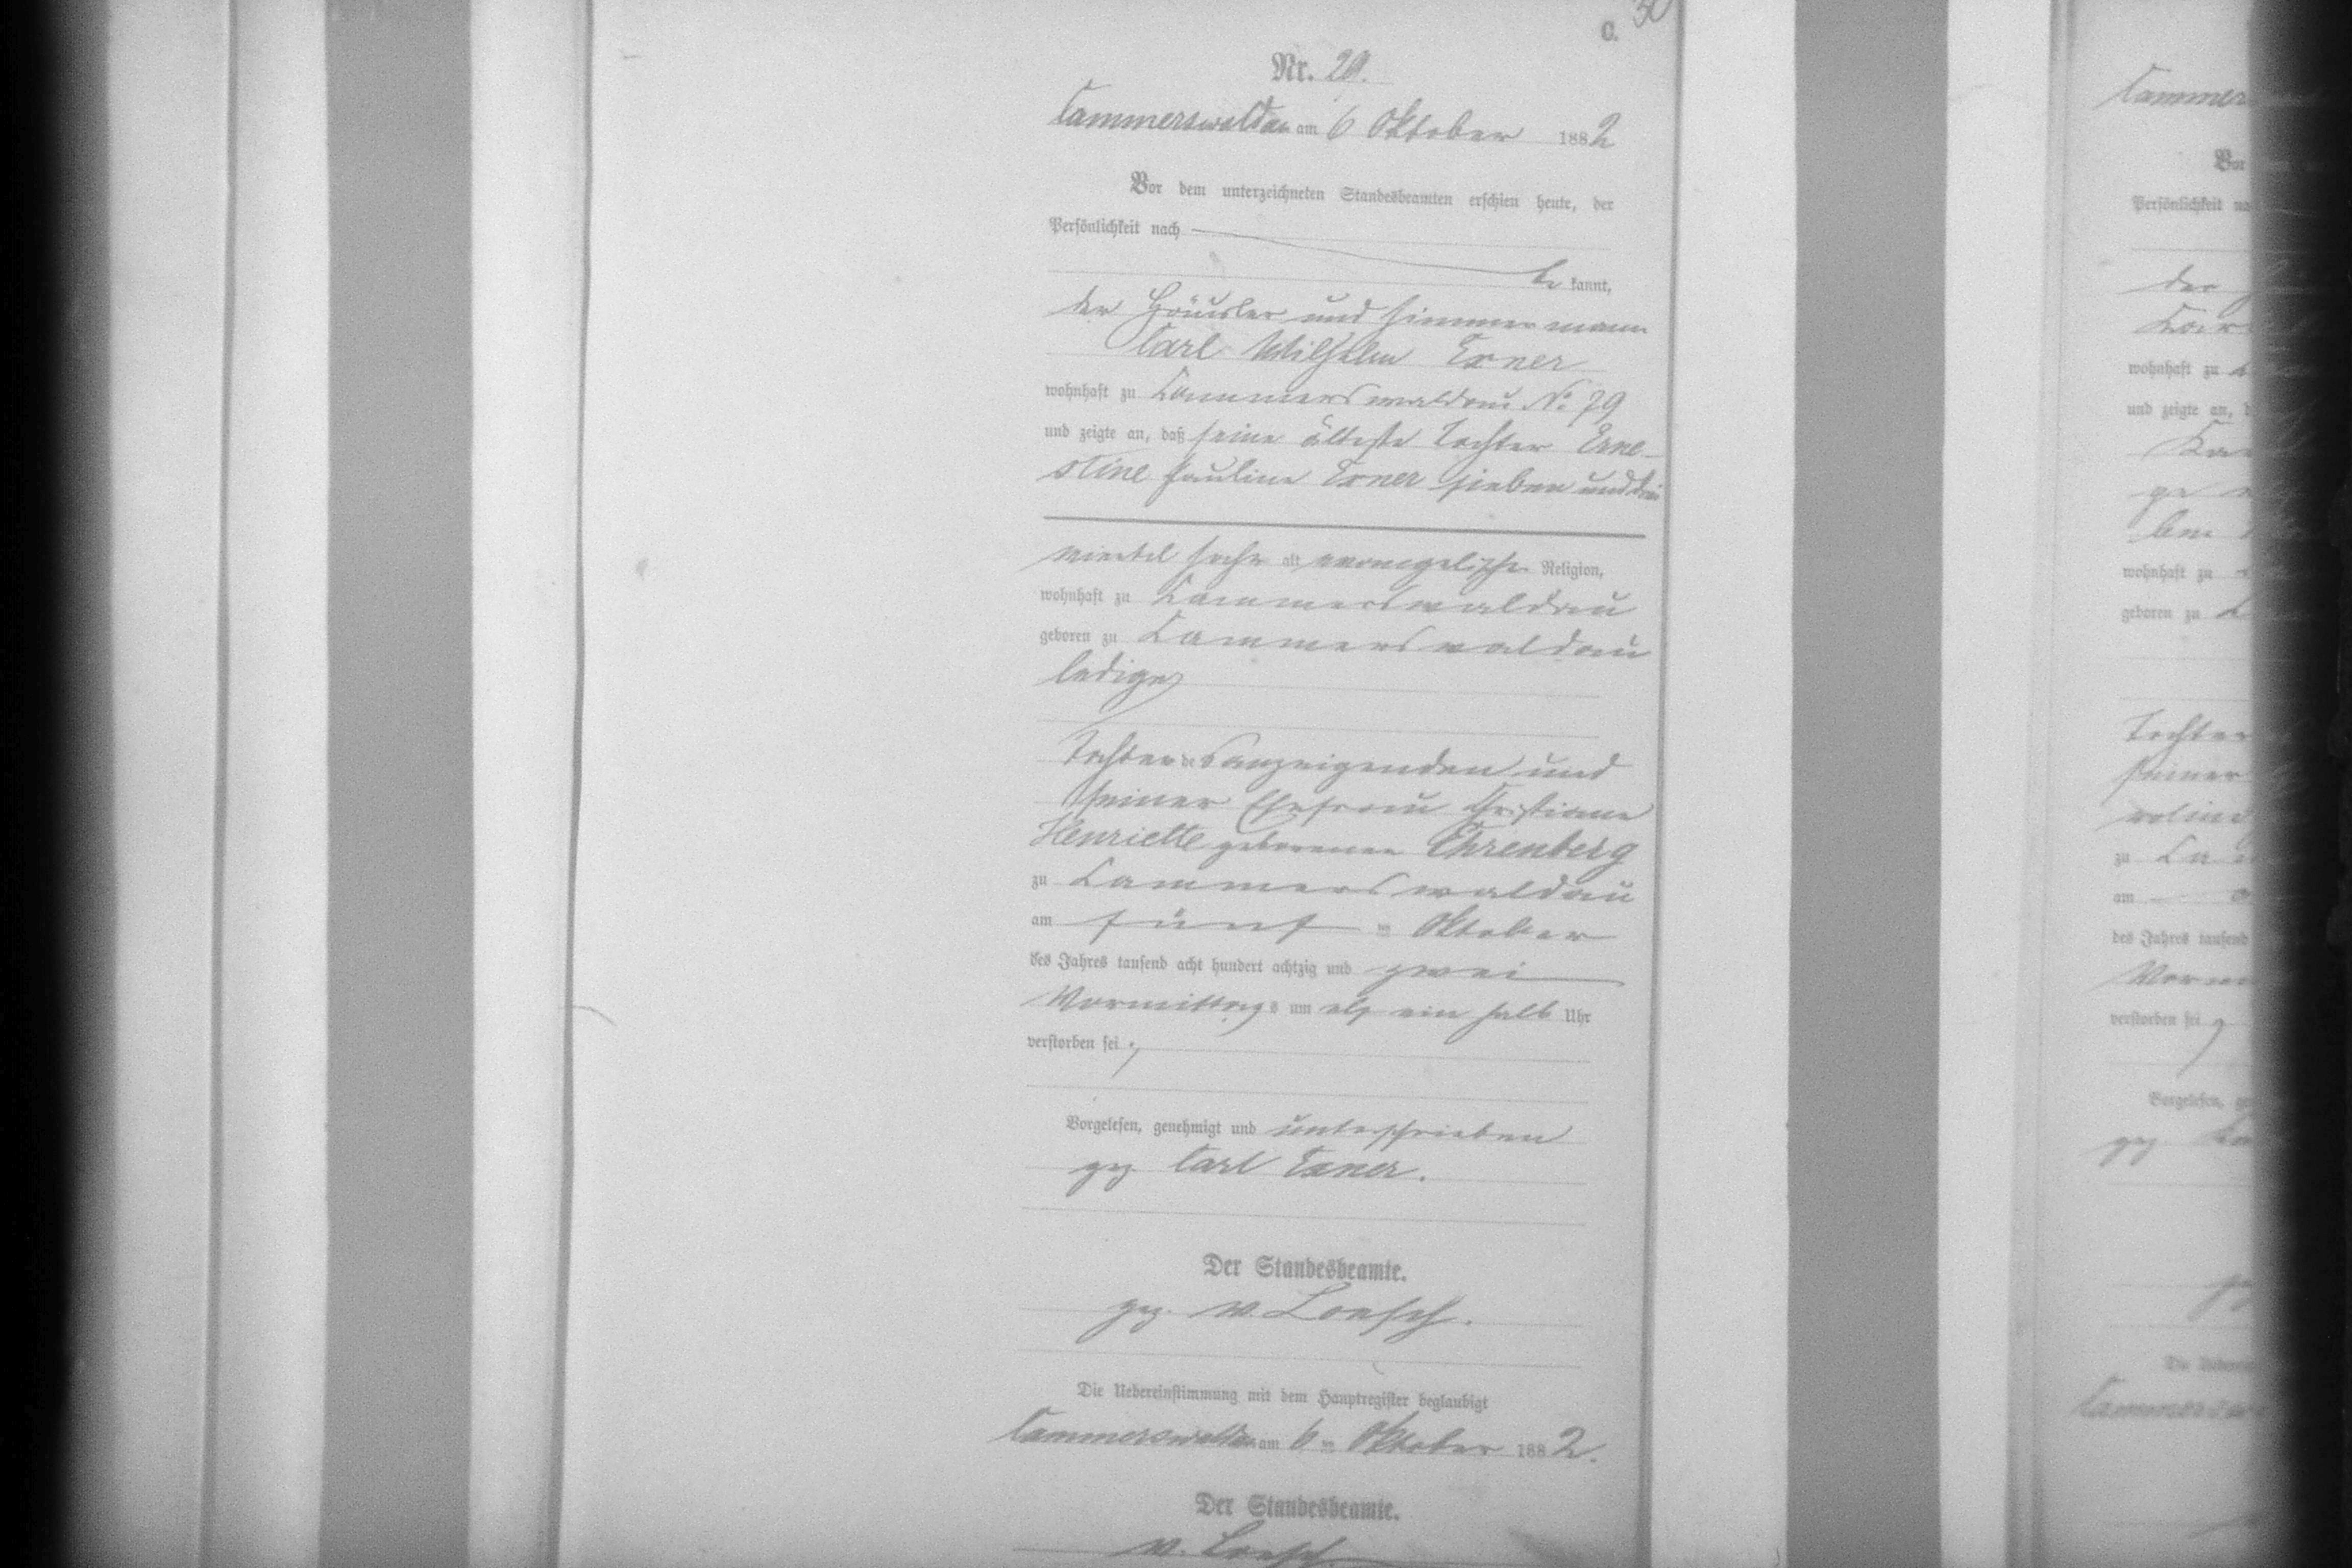 C.
30
Nr. 29.
Cammerswaldau am 6 Oktober 1882
Vor dem unterzeichneten Standesbeamten erschien heute, der
Persönlichkeit nach
be kannt,
der Häusler und Zimmermann
Carl Wilhelm Exner
wohnhaft zu Cammerswaldau No 79
und zeigte an, daß seine älteste Tochter Erne-
stine Pauline Exner sieben und drei
viertel Jahr alt evangelischer Religion,
wohnhaft zu Cammerswaldau
geboren zu Cammerswaldau
ledig
Tochter des anzeigenden und
seiner Ehefrau Christiane
Henriette geborenen Ehrenberg
zu Cammerswaldau
am fünf ten Oktober
des Jahres tausend acht hundert achtzig und zwei
Vormittags um elf ein halb Uhr
verstorben sei;
Vorgelesen, genehmigt und unterschrieben
gez Carl Exner.
Der Standesbeamte.
gez. v. Loesch.
Die Uebereinstimmung mit dem Hauptregister beglaubigt
Cammerswaldau am 6 ten Oktober 1882.
Der Standesbeamte.
v. Loesch
Cammer
Vor
Persönlichkeit na
der
wohnhaft zu
und zeigte an, d
wohnhaft zu
geboren zu
Tochter
seiner
zu Ca
am
des Jahres tausend
Vorm
verstorben sei
Vorgelesen, ge
gez
DieUeberein
Cammersw